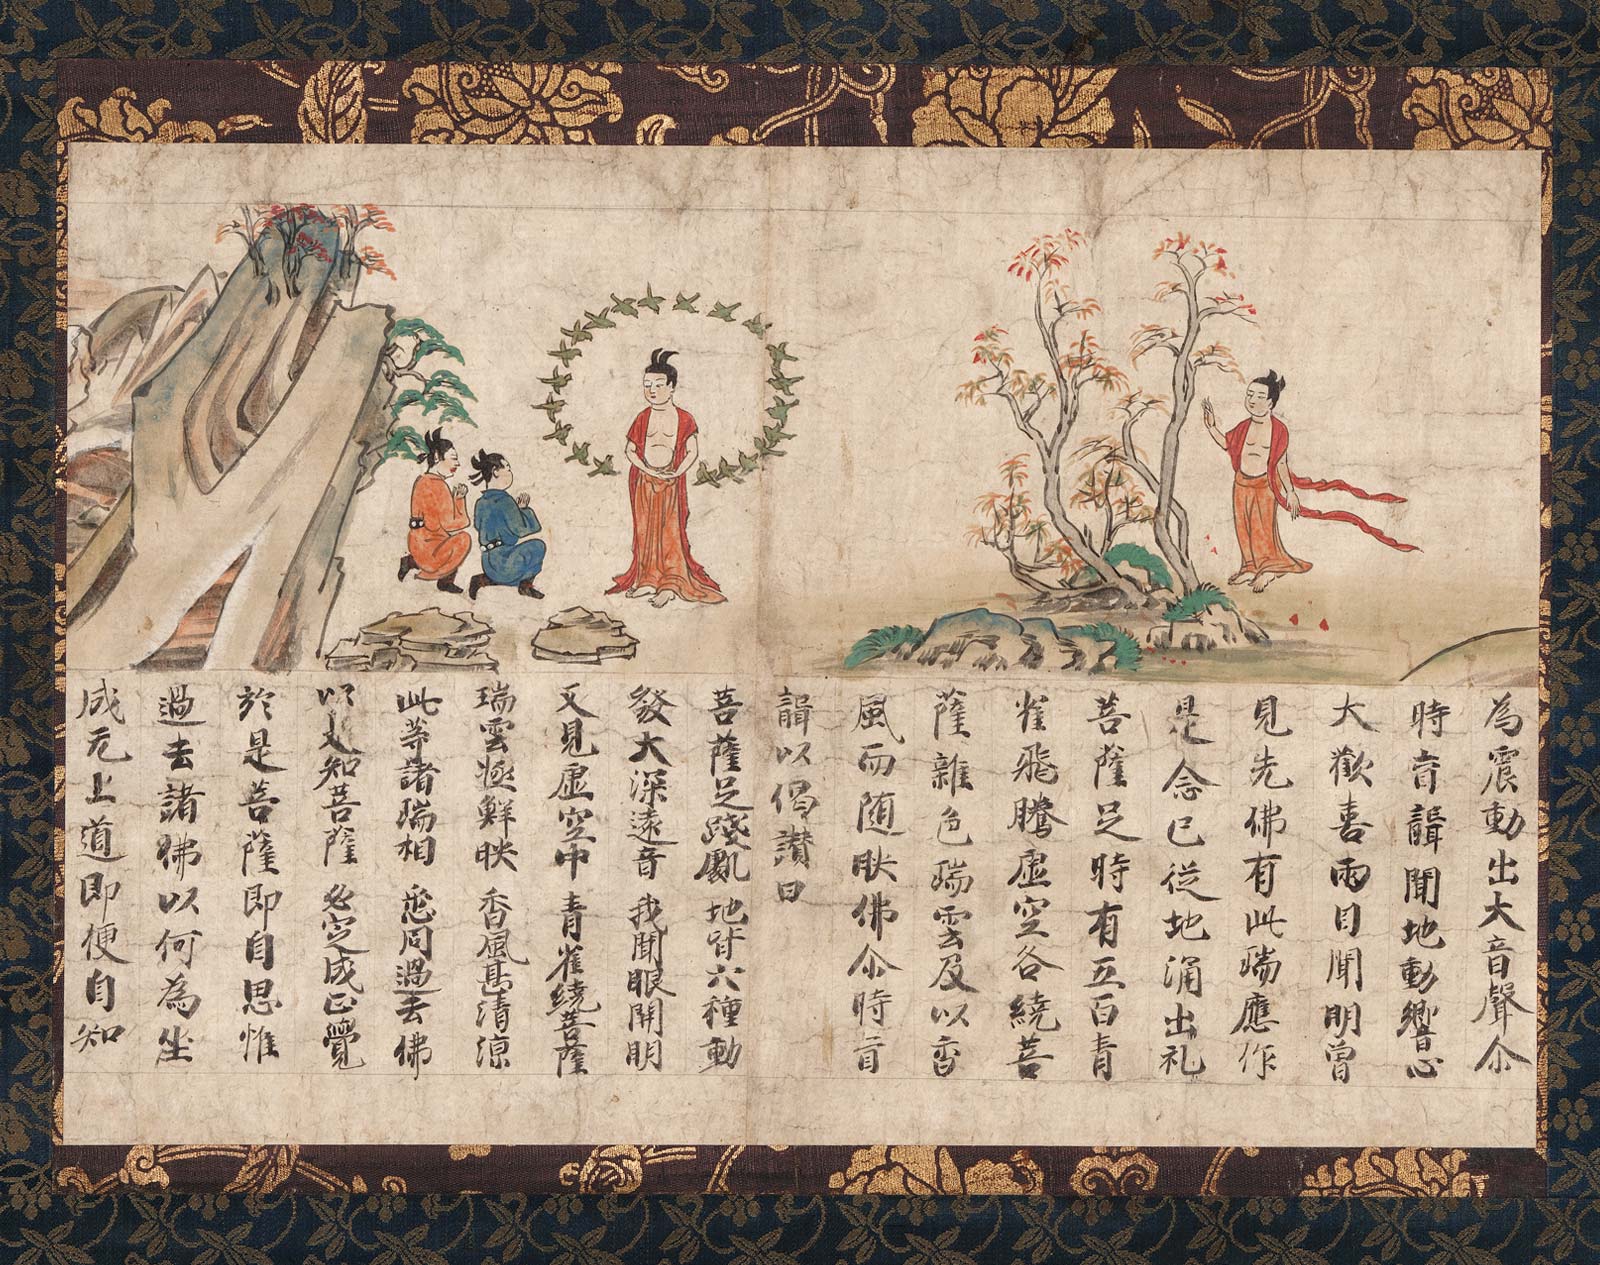 為震動出大音聲尒
時盲龍聞地動響心
大歡喜兩目開明曾
見先佛有此瑞應作
是念已從地涌出礼
菩薩足時有五百青
雀飛騰虛空各繞菩
薩雜色瑞雲及以香
風而随映佛尒時盲
龍以偈讃曰
菩薩足踐處 地皆六種動
發大深遠音 我聞眼開明
又見虛空中 青雀繞菩薩
瑞雲極鮮映 香風甚清涼
此等諸瑞相 悉同過去佛
以是知菩薩 必定成正覺
於是菩薩即自思惟
過去諸佛以何為坐
成无上道即便自知